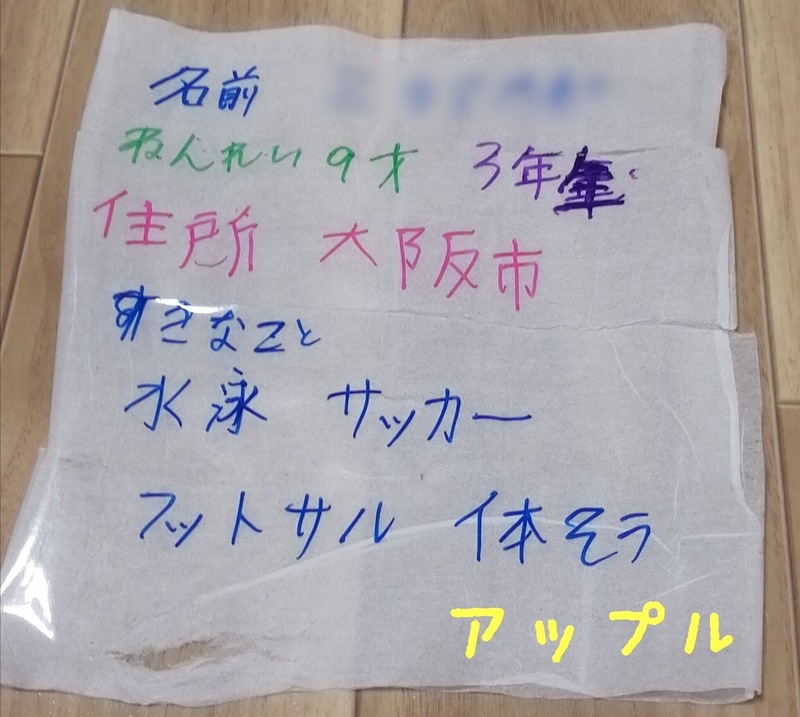 名前
ねんれい 9才 3年生
住所 大阪市
すきなこと
水泳 サッカー
フットサル 体そう
アップル